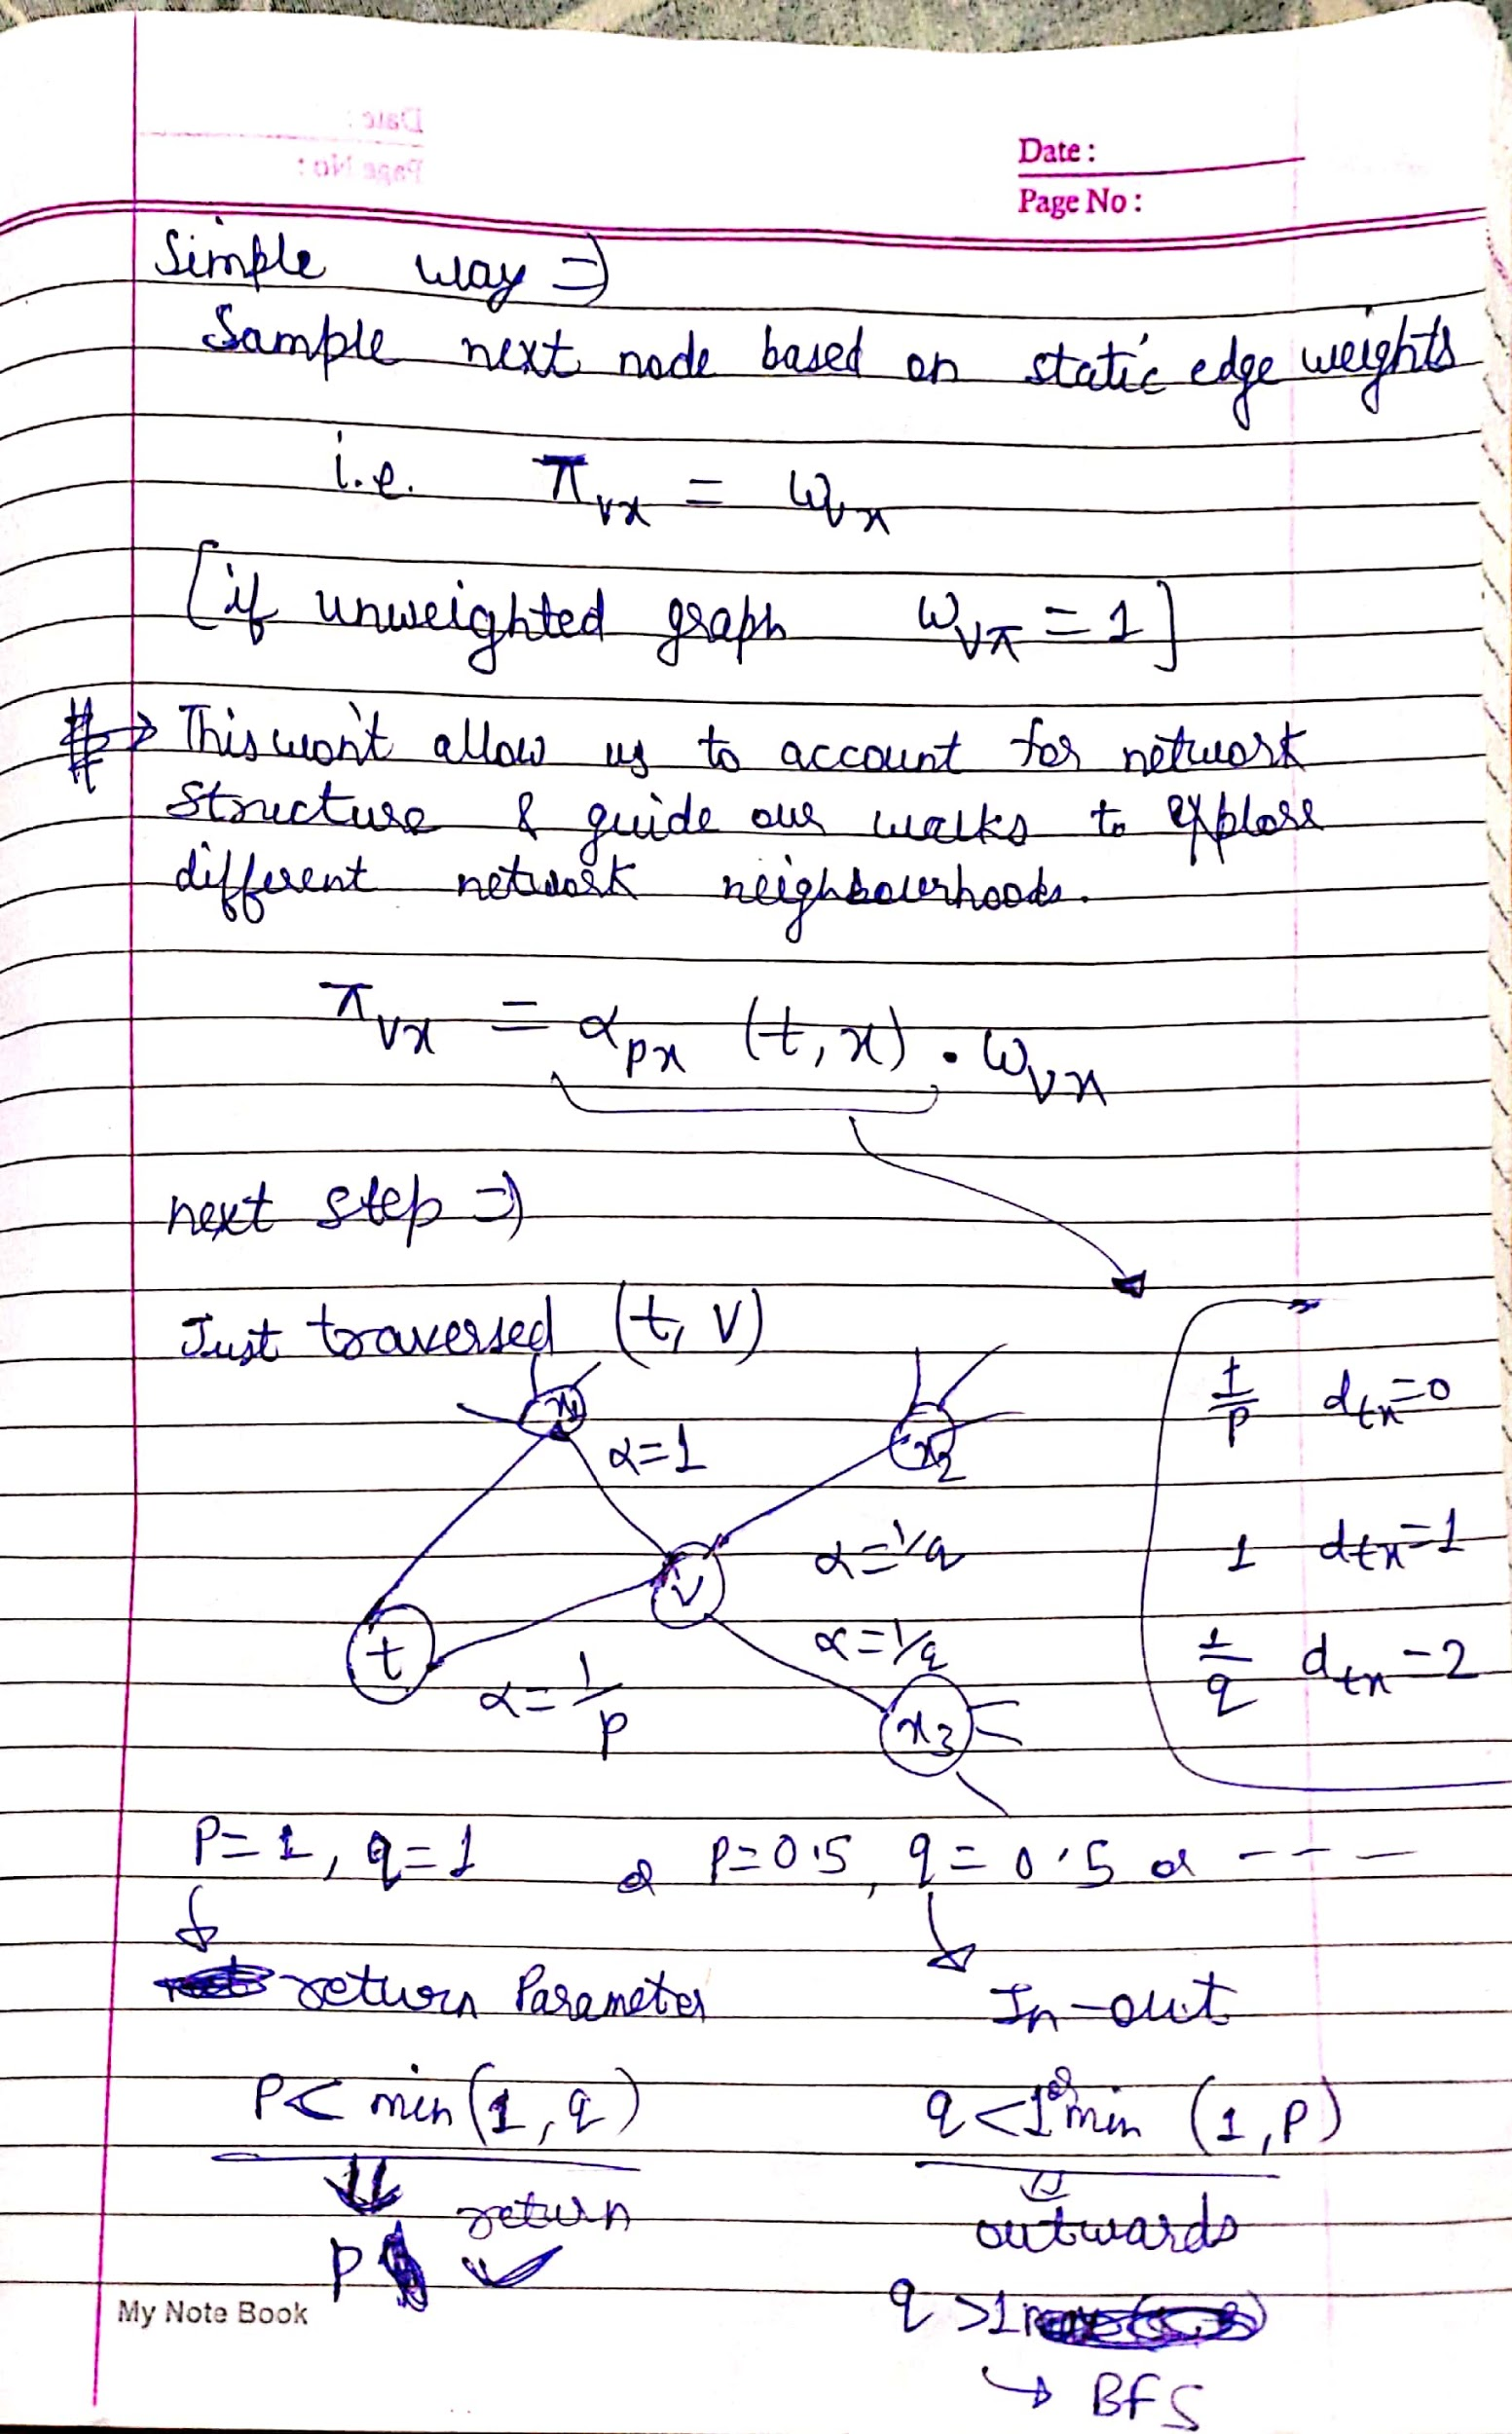 Date :
Page No :
Simple way ⇒
Sample next node based on static edge weights
i.e. π_vx = w_vx
[if unweighted graph w_vx = 1]
# → This won't allow us to account for network
structure & guide our walks to explore
different network neighbourhoods.
π_vx = α_px (t, x) . w_vx
next step ⇒
Just traversed (t, v)
x1
α=1
x2
1/p d_tx=0
α=1/q
1 d_tx=1
v
t
α=1/q
1/q d_tx=2
α=1/p
x3
P=1, q=1 or P=0.5, q=0.5 or - - -
return Parameter
In-out
P< min(1, q)
q<1 or min (1, P)
return
outwards
P
q >1
→ BFS
My Note Book